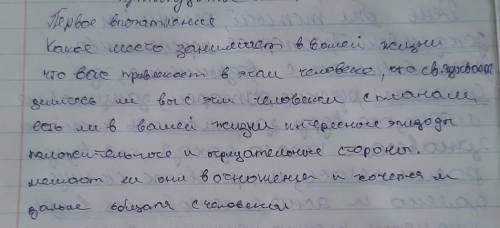 Первое впечатление
Какое место занимает в вашей жизни
что вас привлекает в этом человеке, что связывает
ли вы с эти человеком планами,
есть ли в вашей жизни интересные эпизоды
положительные и отрицательные стороны.
мешает ли они в отношения и хочется ли
дальше общатя с человеком